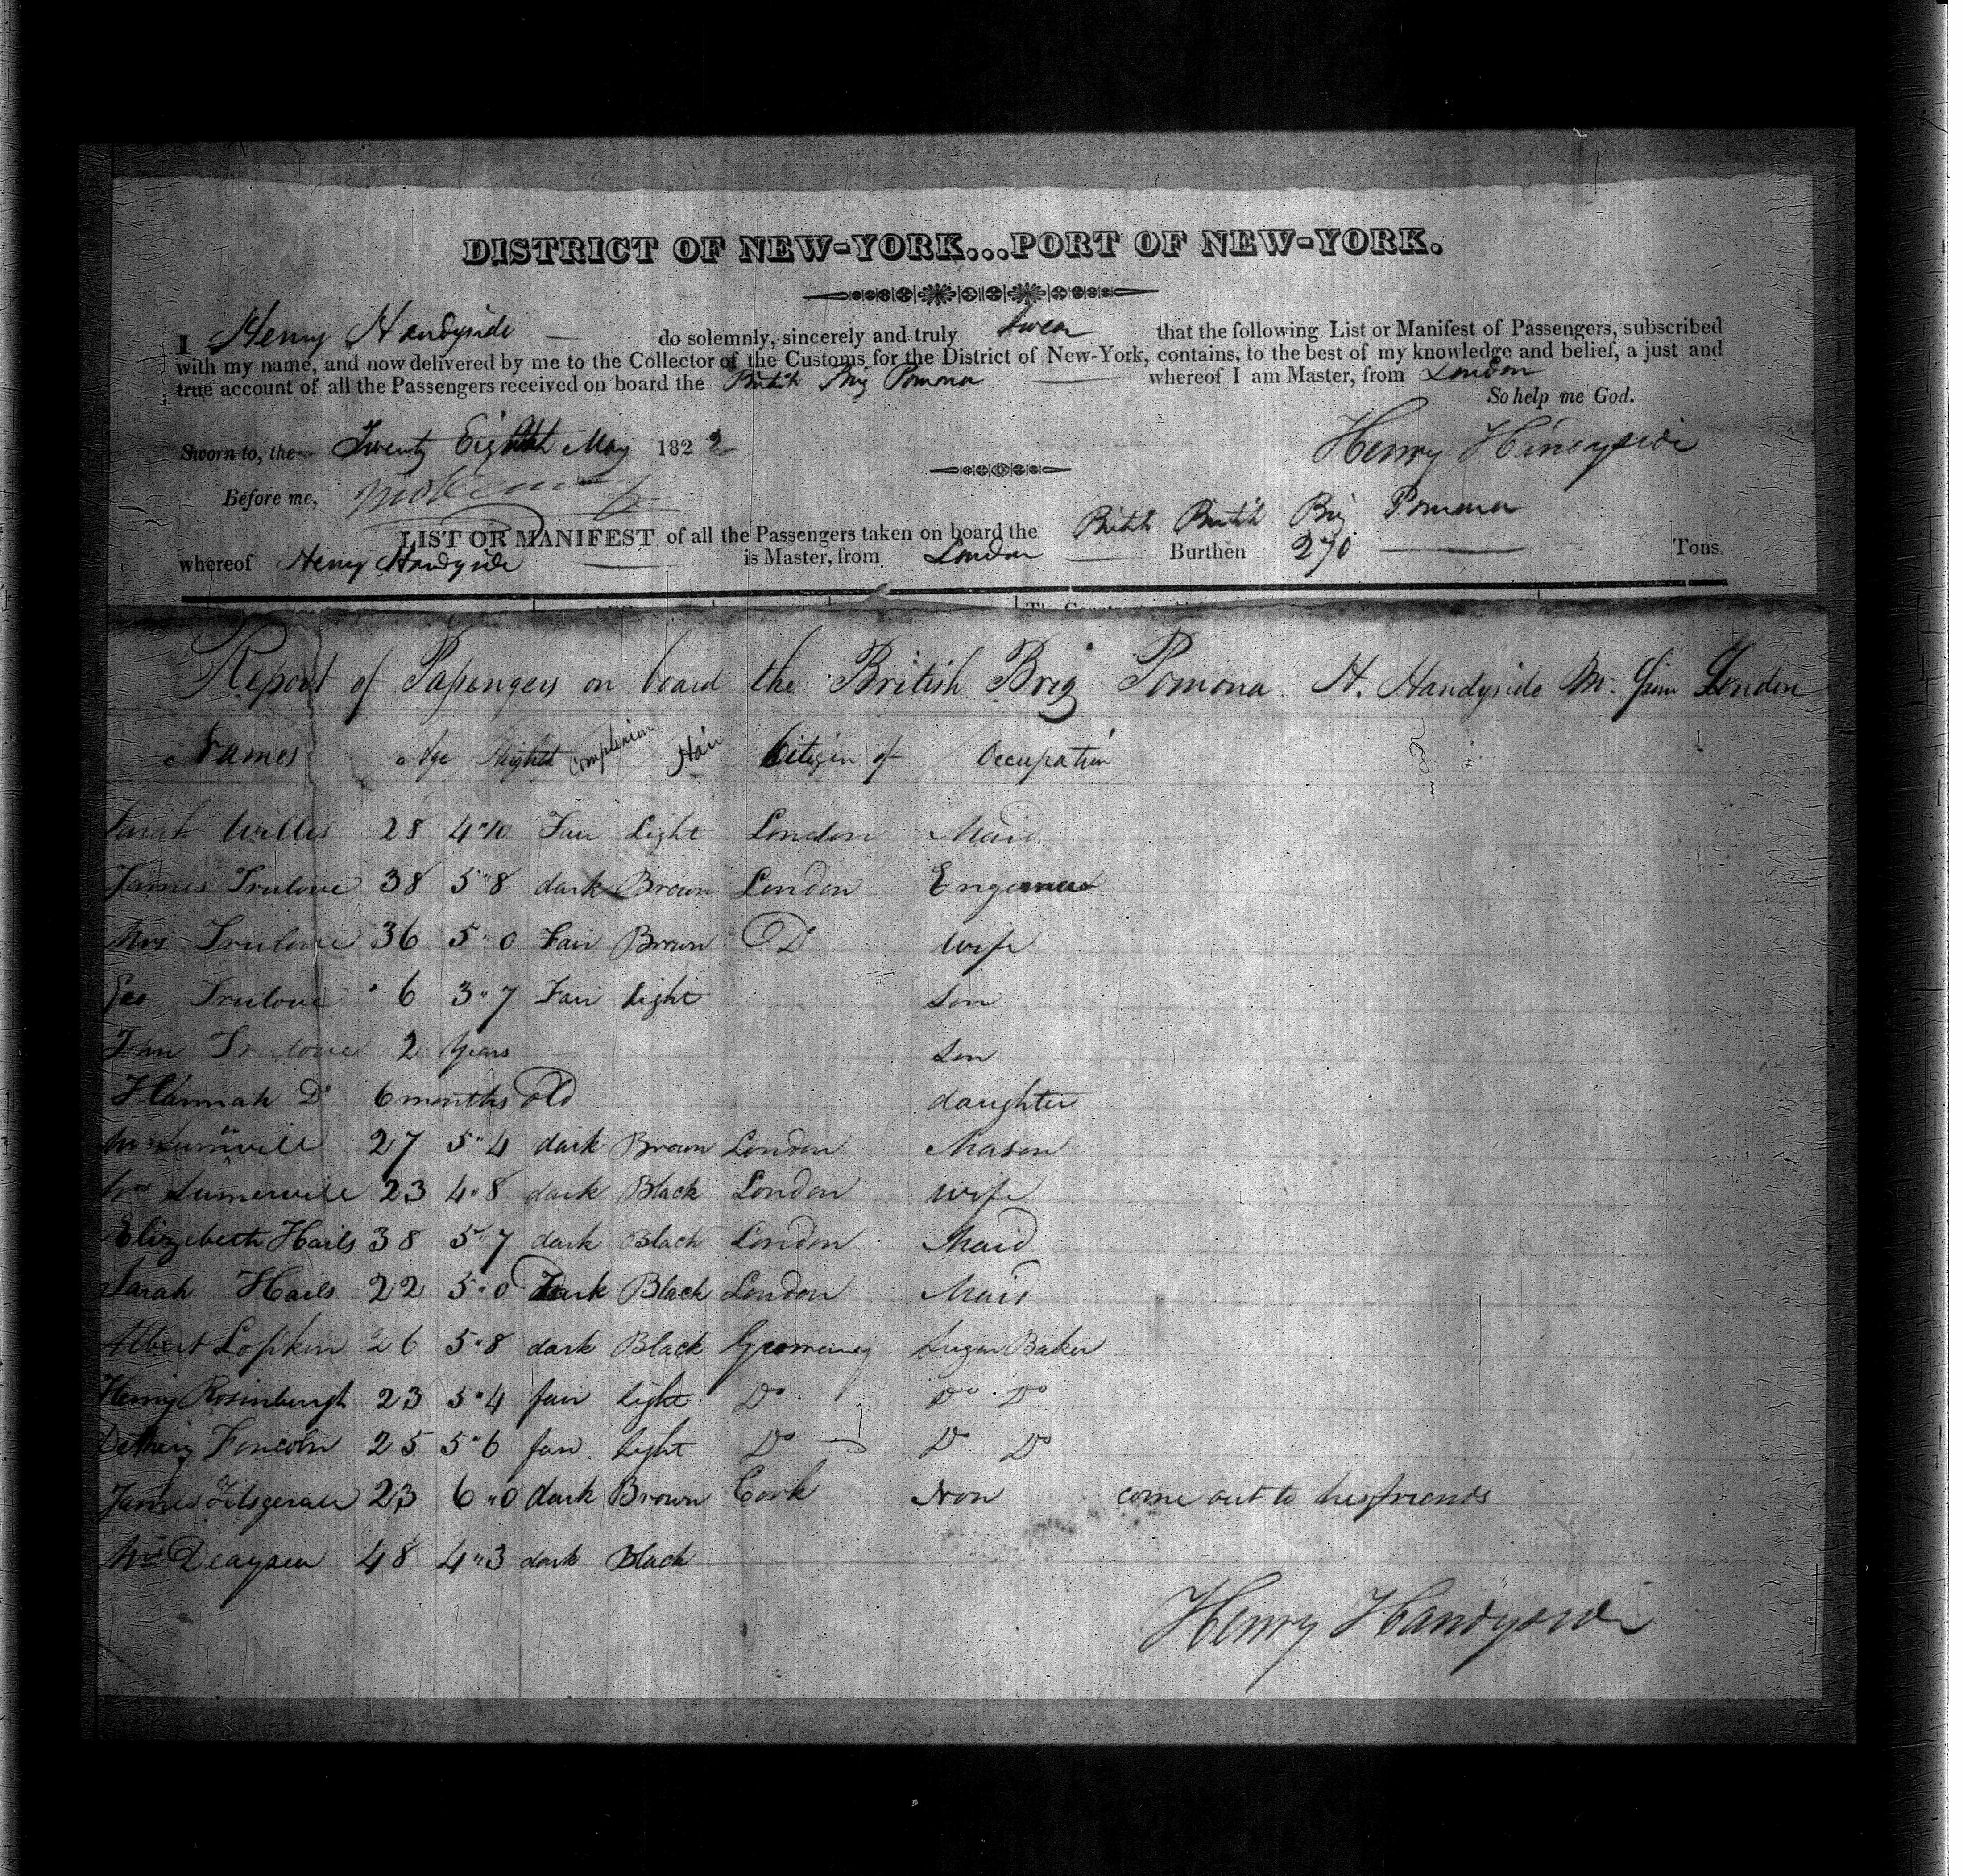 DISTRICT OF NEW-YORK...PORT OF NEW-YORK.
I Henry Handyside do solemnly, sincerely and truly Swear that the following List or Manifest of Passengers, subscribed
with my name, and now delivered by me to the Collector of the Customs for the District of New-York, contains, to the best of my knowledge and belief, a just and
true account of all the Passengers received on board the British Brig Pomona whereof I am Master, from London
So help me God.
Sworn to, the Twenty Eighth May 1822
Henry Handyside
Before me,
LIST OR MANIFEST of all the Passengers taken on board the British British Brig Pomona
whereof Henry Handyside is Master, from London Burthen 270 Tons.
Report of Passengers on board the British Brig Pomona H. Handyside Mr. from London
Names Age Hight Complexion Hair Citizin of Occupation
Sarah Willis 28 4"10 Fair Light London Maid
James Trulove 38 5"8 dark Brown London
Mrs Trulove 36 5"0 Fair Brown Do wife
Geo Trulove 6 3"7 Fair light son
John Trulove 2 Years son
Hannah Do 6 months old daughter
27 5"4 dark Brown London Mason
Mrs Sumerville 23 4"8 dark Black London wife
Elizibeth Hails 38 5"7 dark Black London Maid
Sarah Hails 22 5"0 Dark Black London Maid
Albert Lopkin 26 5"8 dark Black Germany Sugar Baker
Henry Rosinburgh 23 5"4 fair light Do Do Do
25 5"6 fair light Do Do Do
James Fitsgerald 23 6"0 dark Brown Cork Non come out to his friends
48 4"3 dark Black
Henry Handyside